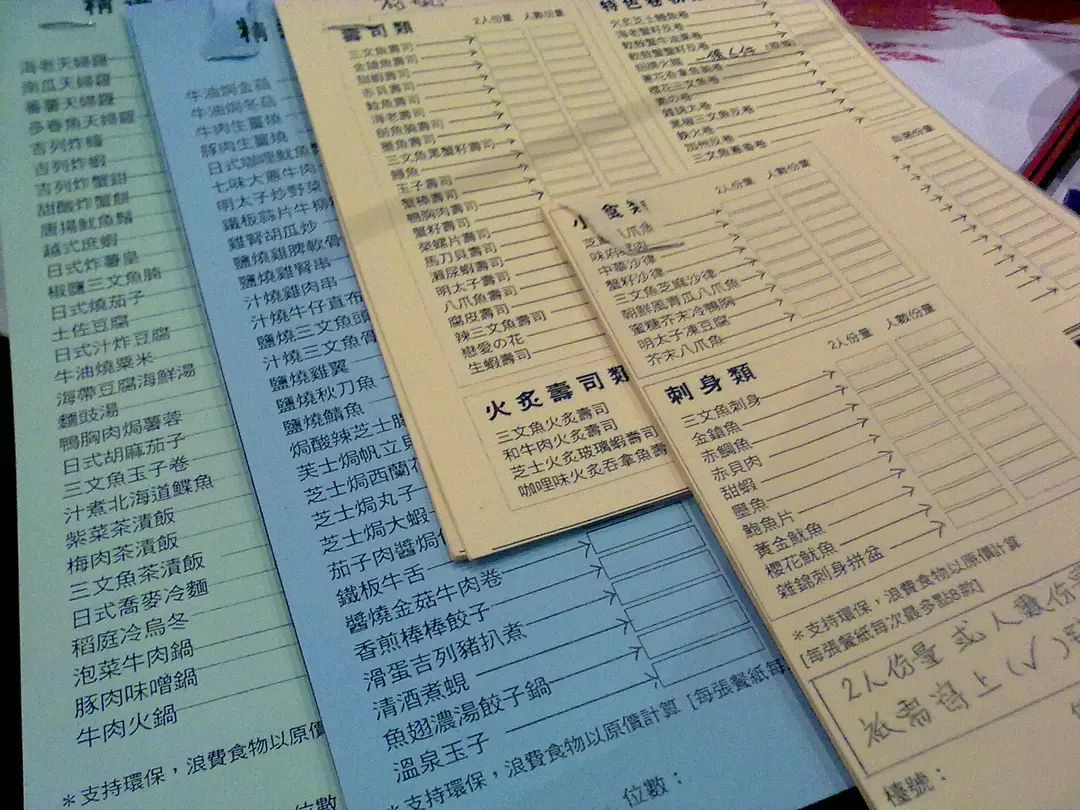 精
海老天婦羅
南瓜天婦羅
蕃薯天婦羅
多春魚天婦羅
吉列炸蠔
吉列炸蝦
吉列炸蟹鉗
甜醋炸蟹餅
唐揚魷魚鬚
越式庶蝦
日式炸薯皇
椒鹽三文魚腩
日式燒茄子
土佐豆腐
日式汁炸豆腐
牛油燒粟米
海帶豆腐海鮮湯
麵豉湯
鴨胸肉焗薯蓉
日式胡麻茄子
三文魚玉子卷
汁煮北海道鰈魚
紫菜茶漬飯
梅肉茶漬飯
三文魚茶漬飯
日式喬麥冷麵
稻庭冷烏冬
泡菜牛肉鍋
豚肉味噌鍋
牛肉火鍋
*支持環保，浪費食物以原價
位數
精
牛油焗金菇
牛油焗冬菇
牛肉生薑燒
豚肉生薑燒
日式咖哩魷魚
七味大蔥牛肉
明太子炒野菜
鐵板蒜片牛柳
雞腎胡瓜炒
鹽燒雞脾軟骨
鹽燒雞腎串
汁燒雞肉串
汁燒牛仔直布
鹽燒三文魚頭
汁燒三文魚骨
鹽燒雞翼
鹽燒秋刀魚
鹽燒鯖魚
焗酸辣芝士腸
芙士焗帆立貝
芝士焗西蘭花
芝士焗丸子
芝士焗大蝦
茄子肉醬焗
鐵板牛舌
醬燒金菇牛肉卷
香煎棒棒餃子
滑蛋吉列豬扒煮
清酒煮蜆
魚翅濃湯餃子鍋
溫泉玉子
*支持環保，浪費食物以原價計算 [每張餐紙每
位數：
壽司類
2人份量 人數份量
三文魚壽司
金鎗魚壽司
甜蝦壽司
赤貝壽司
鯰魚壽司
海老壽司
劍魚腩壽司
墨魚壽司
三文魚黑蟹籽壽司
鯛魚
玉子壽司
蟹棒壽司
鴨胸肉壽司
蟹籽壽司
榮螺片壽司
馬刀貝壽司
瀨尿蝦壽司
明太子壽司
八爪魚壽司
腐皮壽司
辣三文魚壽司
戀愛の花
生蝦壽司
火炙壽司類
三文魚火炙壽司
和牛肉火炙壽司
芝士火炙玻璃蝦壽司
咖哩味火炙吞拿魚壽
火炙芝士鰻魚卷
海老蟹籽反卷
軟殼蟹牛油果卷
軟殼蟹籽反卷
櫻花三文魚卷
黑椒三文魚反卷
鐵火卷
加州反卷
三文魚蔥香卷
自選份量
小食類
2人份量 人數份量
中華沙律
蟹籽沙律
三文魚芝麻沙律
朝鮮風青瓜八爪魚
蜜糖芥末冷鴨胸
明太子凍豆腐
芥末八爪魚
刺身類
2人份量 人數份量
三文魚刺身
金鎗魚
赤鯛魚
赤貝肉
甜蝦
墨魚
鮑魚片
黃金魷魚
櫻花魷魚
雜錦刺身拼盆
*支持環保，浪費食物以原價計算
[每張餐紙每次最多點8款]
2人份量 或 人數份
祇需將上(√)
檯號：